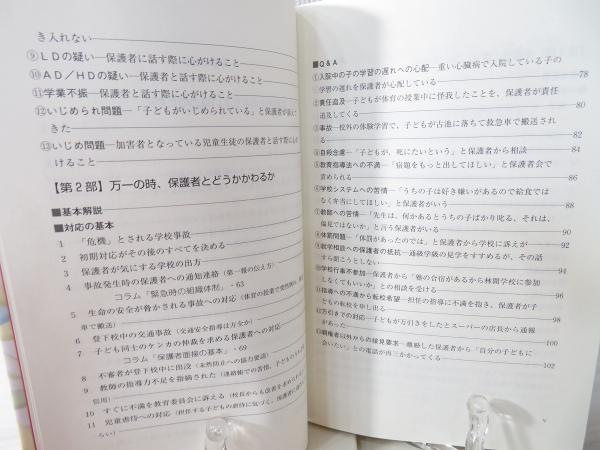 き入れない
⑨LDの疑い―保護者に話す際に心がけること
⑩AD/HDの疑い―保護者と話す際に心がけること
⑪学業不振―保護者と話す際に心がけること
⑫いじめられ問題―「子どもがいじめられている」と保護者が訴えて
きた
⑬いじめ問題―加害者となっている児童生徒の保護者と話す際に心
けること
【第2部】万一の時、保護者とどうかかわるか
■基本解説
■対応の基本
1 「危機」とされる学校事故
2 初期対応がその後のすべてを決める
3 保護者が気にする学校の出方
4 事故発生時の保護者への通知連絡（第一報の伝え方）
コラム「緊急時の組織体制」・63
5 生命の安全が脅かされる事故への対応（体育の授業で
車で搬送）
6 登下校中の交通事故（交通安全指導は万全か）
7 子ども同士のケンカの仲裁を求める保護者への対応
コラム「保護者面接の基本」・69
8 不審者が登下校中に出没（未然防止への協力要請）
9 教師の指導力不足を指摘された（連絡帳での苦情、子どもの
借用）
10 すぐに不満を教育委員会に訴える（校長からも改善を求められ
11 児童虐待への対応（担任する子どもの虐待に気づく。保護者に
らい）
■Q&A
①入院中の子の学習の遅れへの心配―重い心臓病で入院している子の
学習の遅れを保護者が心配している 78
②責任追及―子どもが体育の授業中に怪我したことを、保護者が責任
追及してくる 80
③事故―校外の体験学習で、子どもが古池に落ちて救急車で搬送され
る 82
④自殺念慮―「子どもが、死にたいという」と保護者から相談 84
⑤教育指導法への不満―「宿題をもっと出してほしい」と保護者会で
責められる 86
⑥学校システムへの苦情―「うちの子は好き嫌いがあるので給食では
なく弁当にしてほしい」と保護者がいう 88
⑦教師への苦情―「先生は、何かあるとうちの子ばかり叱る、それは、
偏見ではないか」と言う保護者がいる 90
⑧体罰問題―「体罰があったのでは」と保護者から学校に訴えが 92
⑨就学相談への保護者の抵抗―通級学級の見学をすすめるが、その話
すら聞こうとしない 94
⑩学校行事不参加―保護者から「塾の合宿があるから林間学校に参加
しなくてもいいか」との相談を受ける 96
⑪指導への不満から転校希望―担任の指導に不満を抱き、保護者が子
どもの転校を申し出る 98
⑫万引きへの対応―子どもが万引きをしたとスーパーの店長から通報
があった 100
⑬親権者以外からの接見要求―離婚した保護者から「自分の子どもに
会いたい」との電話が再三かかってくる 102
v